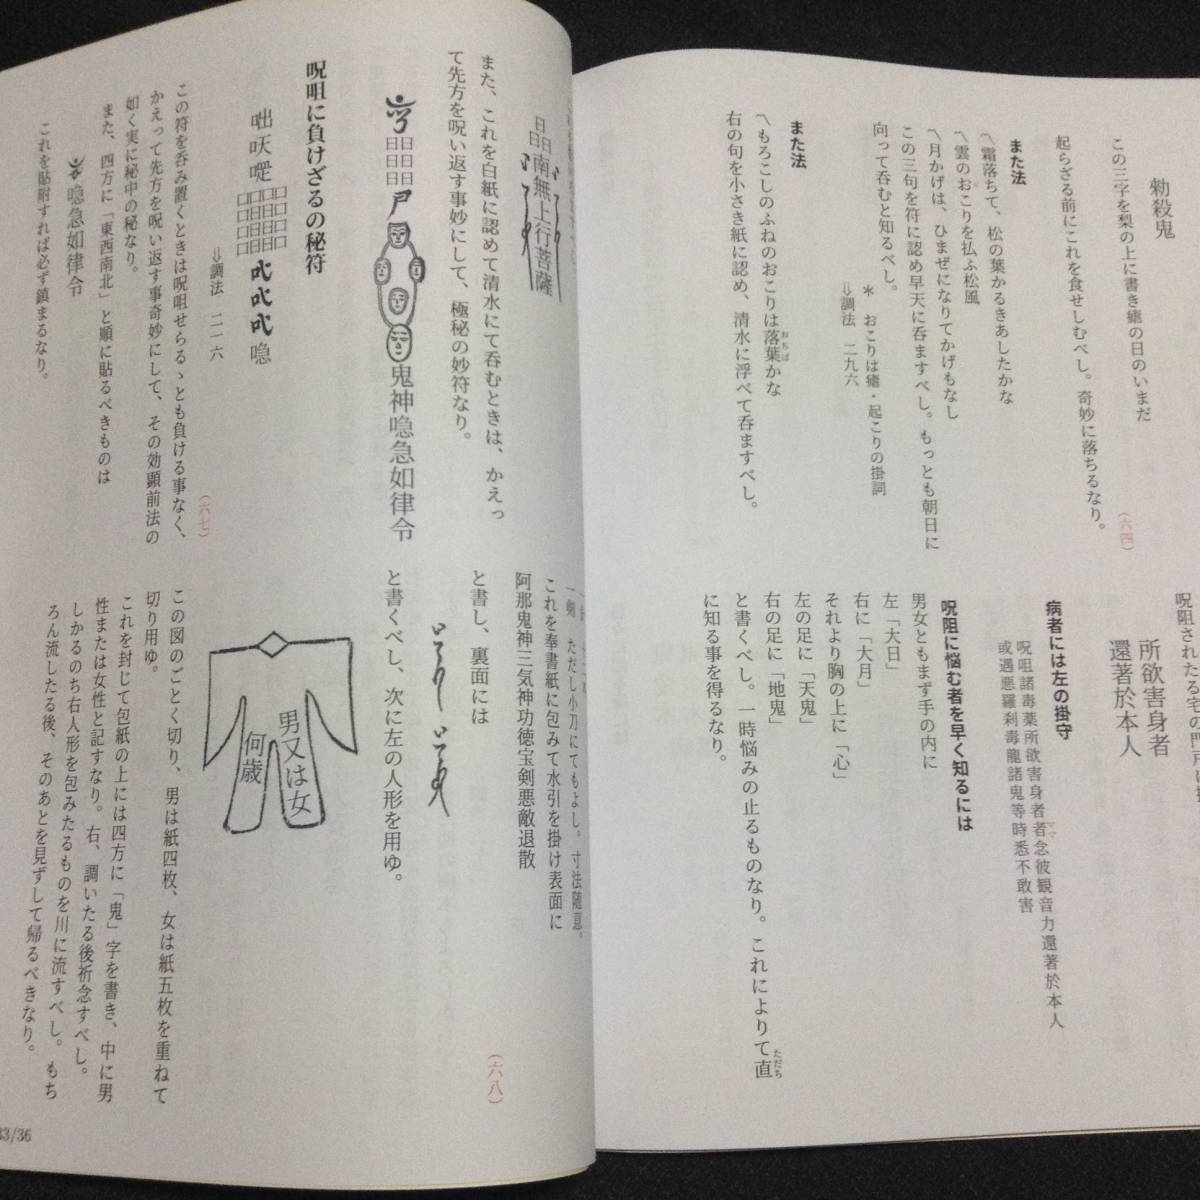 勅殺鬼
この三字を梨の上に書き瘧の日のいまだ
起らざる前にこれを食せしむべし。奇妙に落ちるなり。
(六四)
また法
〽霜落ちて、松の葉かるきあしたかな
〽雲のおこりを払ふ松風
〽月かげは、ひまぜになりてかげもなし
この三句を符に認め早天に呑ますべし。もっとも朝日に
向って呑むと知るべし。
＊ おこりは瘧・起こりの掛詞
⇨調法 二九六
また法
〽もろこしのふねのおこりは落葉かな
おちば
右の句を小さき紙に認め、清水に浮べて呑ますべし。
呪阻されたる宅の門戸に
所欲害身者
還著於本人
病者には左の掛守
呪咀諸毒薬所欲害身者者念彼観音力還著於本人
ママ
或遇悪羅刹毒龍諸鬼等時悉不敢害
呪阻に悩む者を早く知るには
男女ともまず手の内に
左「大日」
右に「大月」
それより胸の上に「心」
左の足に「天鬼」
右の足に「地鬼」
と書くべし。一時悩みの止るものなり。これによりて直
ただち
に知る事を得るなり。
日日日南無上行菩薩
また、これを白紙に認めて清水にて呑むときは、かえっ
て先方を呪い返す事妙にして、極秘の妙符なり。
鬼神噫急如律令
呪咀に負けざるの秘符
⇨調法 二一六
(六七)
この符を呑み置くときは呪咀せらるゝとも負ける事なく、
かえって先方を呪い返す事奇妙にして、その効顕前法の
如く実に秘中の秘なり。
また、四方に「東西南北」と順に貼るべきものは
噫急如律令
これを貼附すれば必ず鎮まるなり。
一剣 ただし小刀にてもよし。寸法随意。
これを奉書紙に包みて水引を掛け表面に
阿那鬼神三気神功徳宝剣悪敵退散
と書し、裏面には
(六八)
と書くべし、次に左の人形を用ゆ。
男又は女
何歳
この図のごとく切り、男は紙四枚、女は紙五枚を重ねて
切り用ゆ。
これを封じて包紙の上には四方に「鬼」字を書き、中に男
性または女性と記すなり。右、調いたる後祈念すべし。
しかるのち右人形を包みたるものを川に流すべし。もち
ろん流したる後、そのあとを見ずして帰るべきなり。
33/36